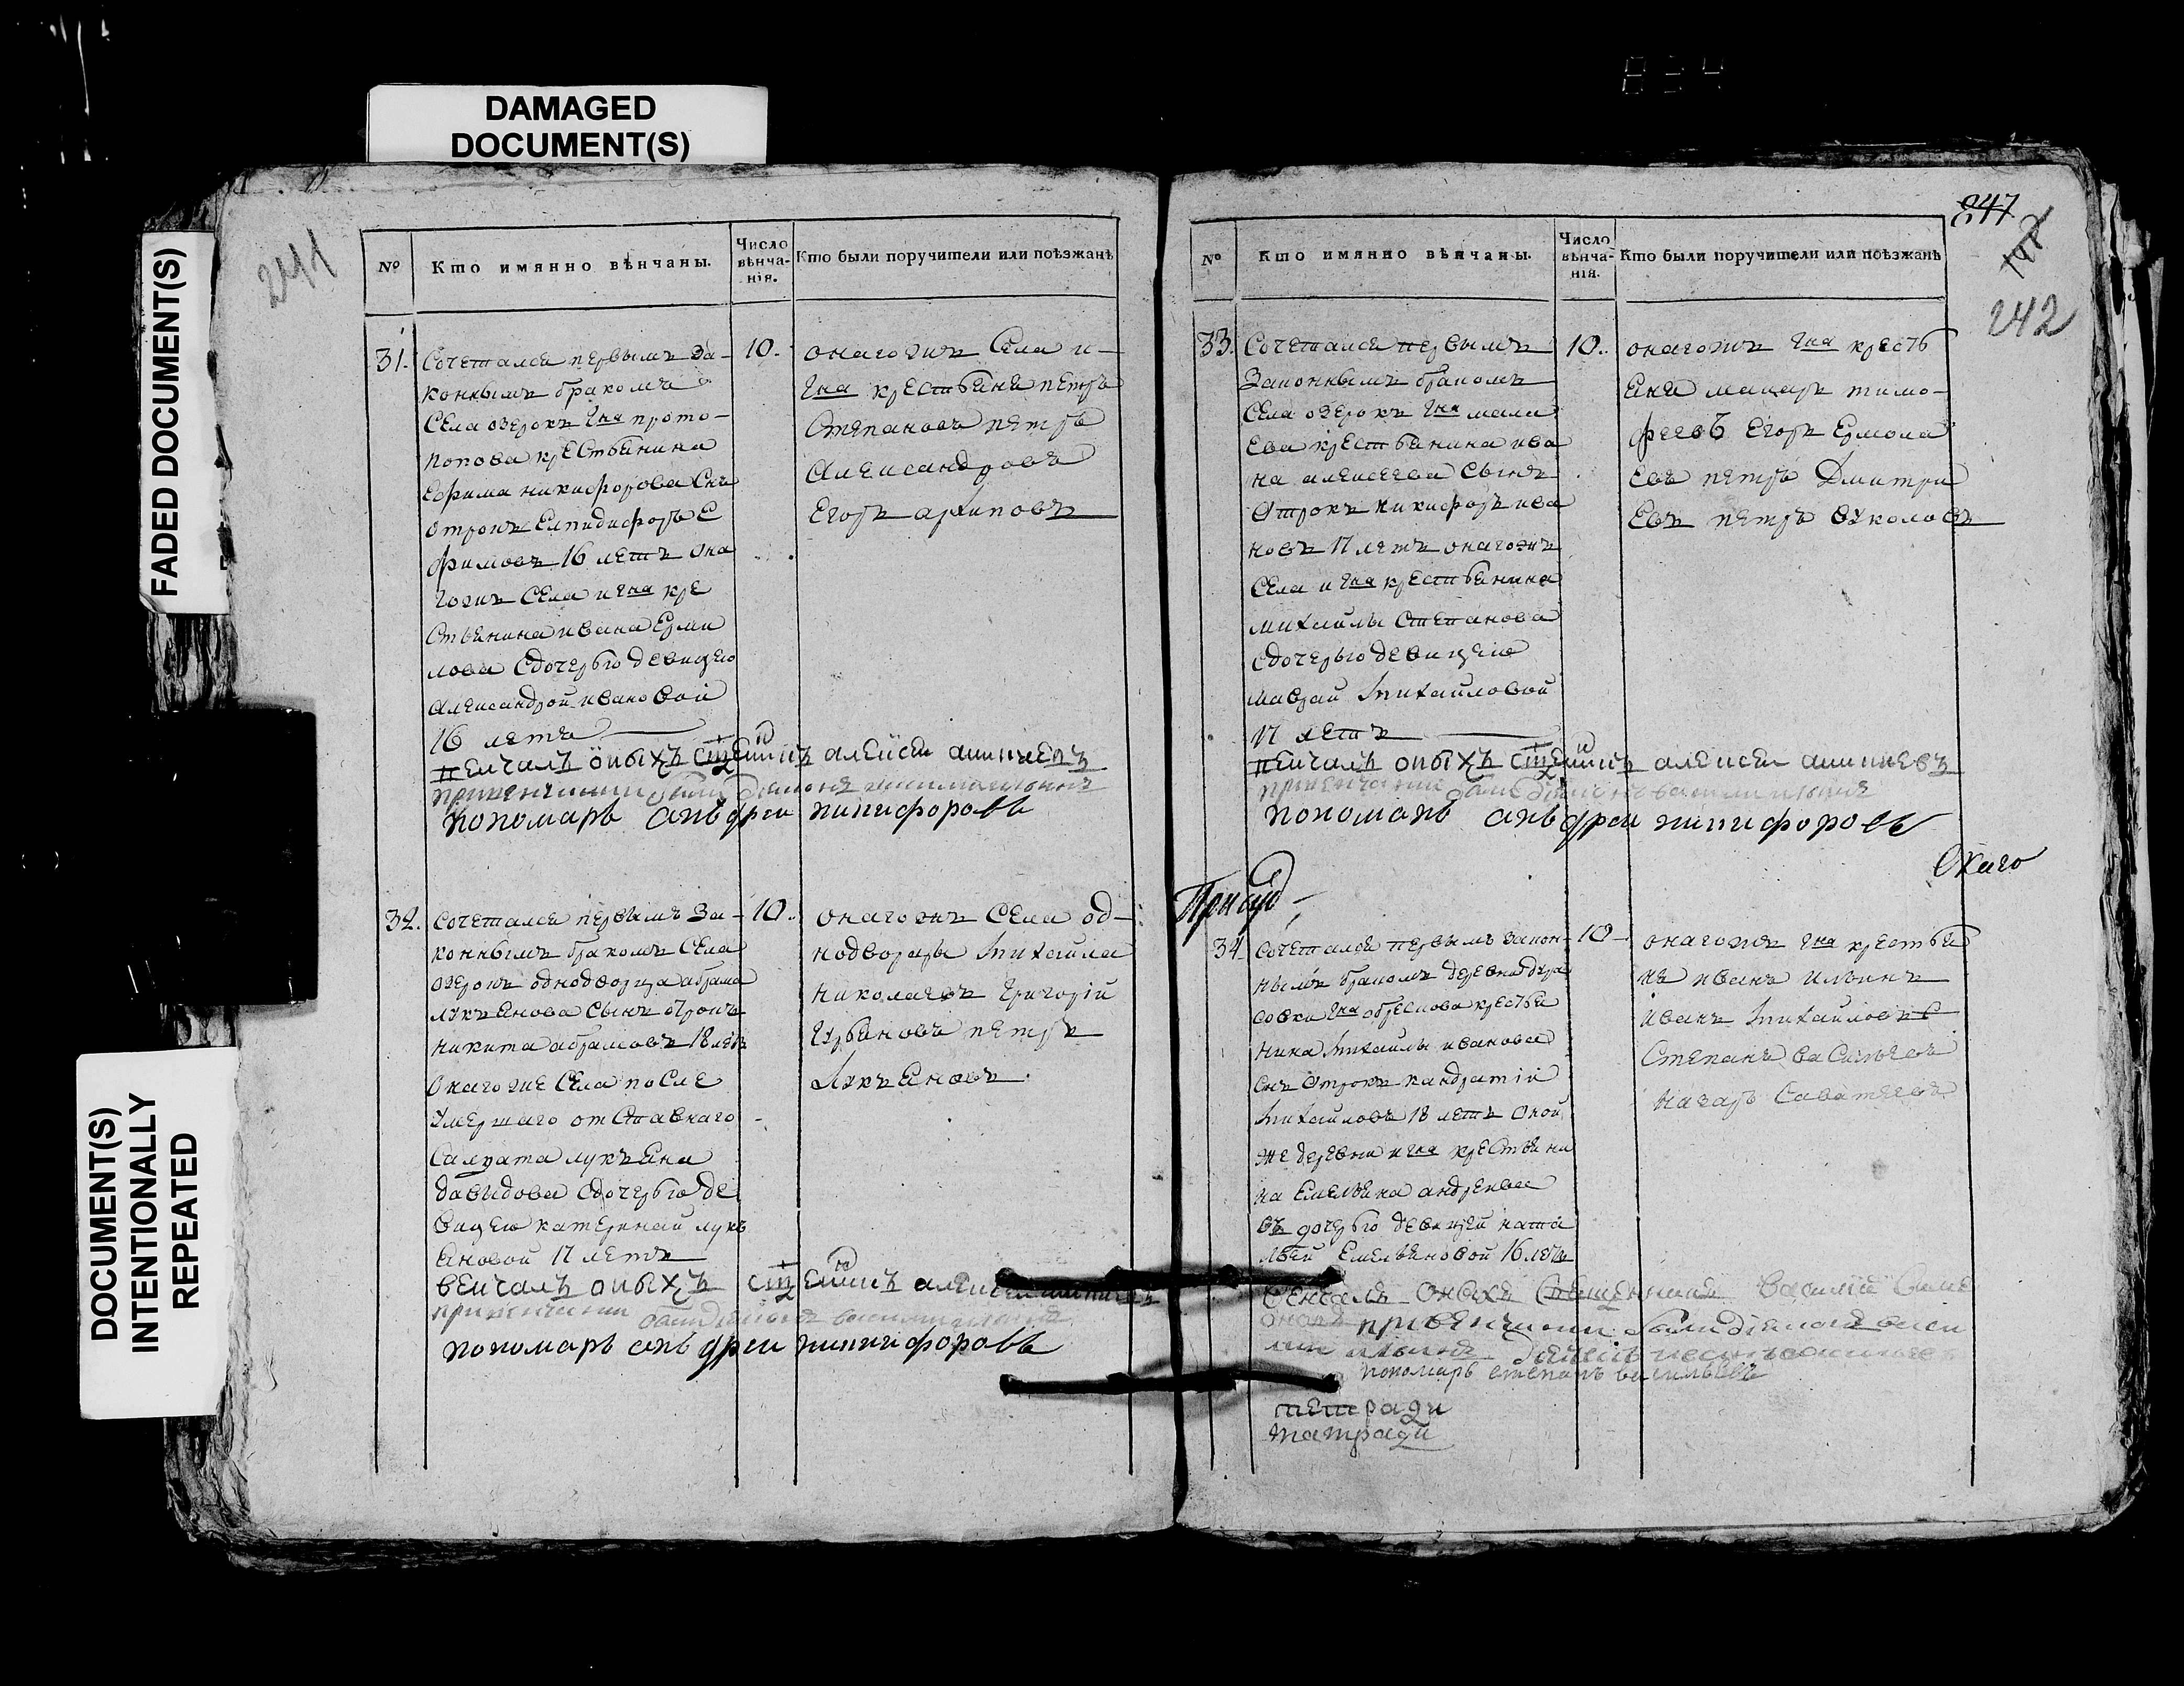 DAMAGED
DOCUMENT(S)
FADED DOCUMENT(S)
DOCUMENT(S)
INTENTIONALLY
REPEATED
834
241
№
Кто имянно вѣнчаны.
Число
вѣнча-
нія.
Кто были поручители или поѣзжанѣ
31.
Сочетался первымъ за-
коннымъ бракомъ
Села озерокъ гна прото-
попова крестьянина
Ефима никифорова Снъ
отрокъ Елпидифоръ Е
фимовъ 16 летъ она
гожъ Села и гна кре
стьянина ивана Ерми
лова Сдочерью девицею
Александрой ивановой
16 летъ
10.
онагожъ Села и
гна крестьяня петръ
Степановъ петръ
Александровъ
Егоръ архиповъ
венчалъ оныхъ алексеи
пономарь анъдреи никифоровъ
32.
Сочетался первымъ за-
коннымъ бракомъ Села
озерокъ однодворца абрама
лукъянова Сынъ отрокъ
никита абрамовъ 18 летъ
онагоже Села после
умершаго отставнаго
Салдата лукъяна
давидова Сдочерью де
вицею катериной лукъ
яновой 17 летъ
10.
онагожъ Села од-
нодворцы михаила
николаевъ григорій
Урбановъ петръ
Лукъяновъ.
венчалъ оныхъ
пономарь анъдреи никифоровъ
247
242
№
Кто имянно вѣнчаны.
Число
вѣнча-
нія.
Кто были поручители или поѣзжанѣ
33.
Сочетался первымъ
Законнымъ бракомъ
Села озерокъ гна мала
Ева крестьянина ива
на алексеева Сынъ
Отрокъ никифоръ ива
новъ 17 летъ онагожъ
Села и гна крестьянина
михаилы Степанова
Сдочерью девицею
маврай михайловой
17 летъ
10.
онагожъ гна кресть
яня макаръ тимо-
феевъ Егоръ Ермола
Евъ петръ Дмитри
Евъ петръ Вуколовъ
венчалъ оныхъ алексеи
пономарь анъдреи никифоровъ
Онаго
34.
Сочетался первымъ закон-
нымъ бракомъ деревни
гна крестья
нина михаилы иванова
Снъ отрокъ кандратій
михайловъ 18 летъ оной
же деревни и гна крестьяни
на Емельяна андреева
съ дочерью девицей ната
льей Емельяновой 16 летъ
10
онагожъ гна крестья
не иванъ ильинъ
иванъ михайловъ
Степанъ васильевъ
назаръ Саватеевъ
венчалъ оныхъ Священникъ Василій
привенчании были діаконъ
пономарь степанъ васильевъ
тетради
татради